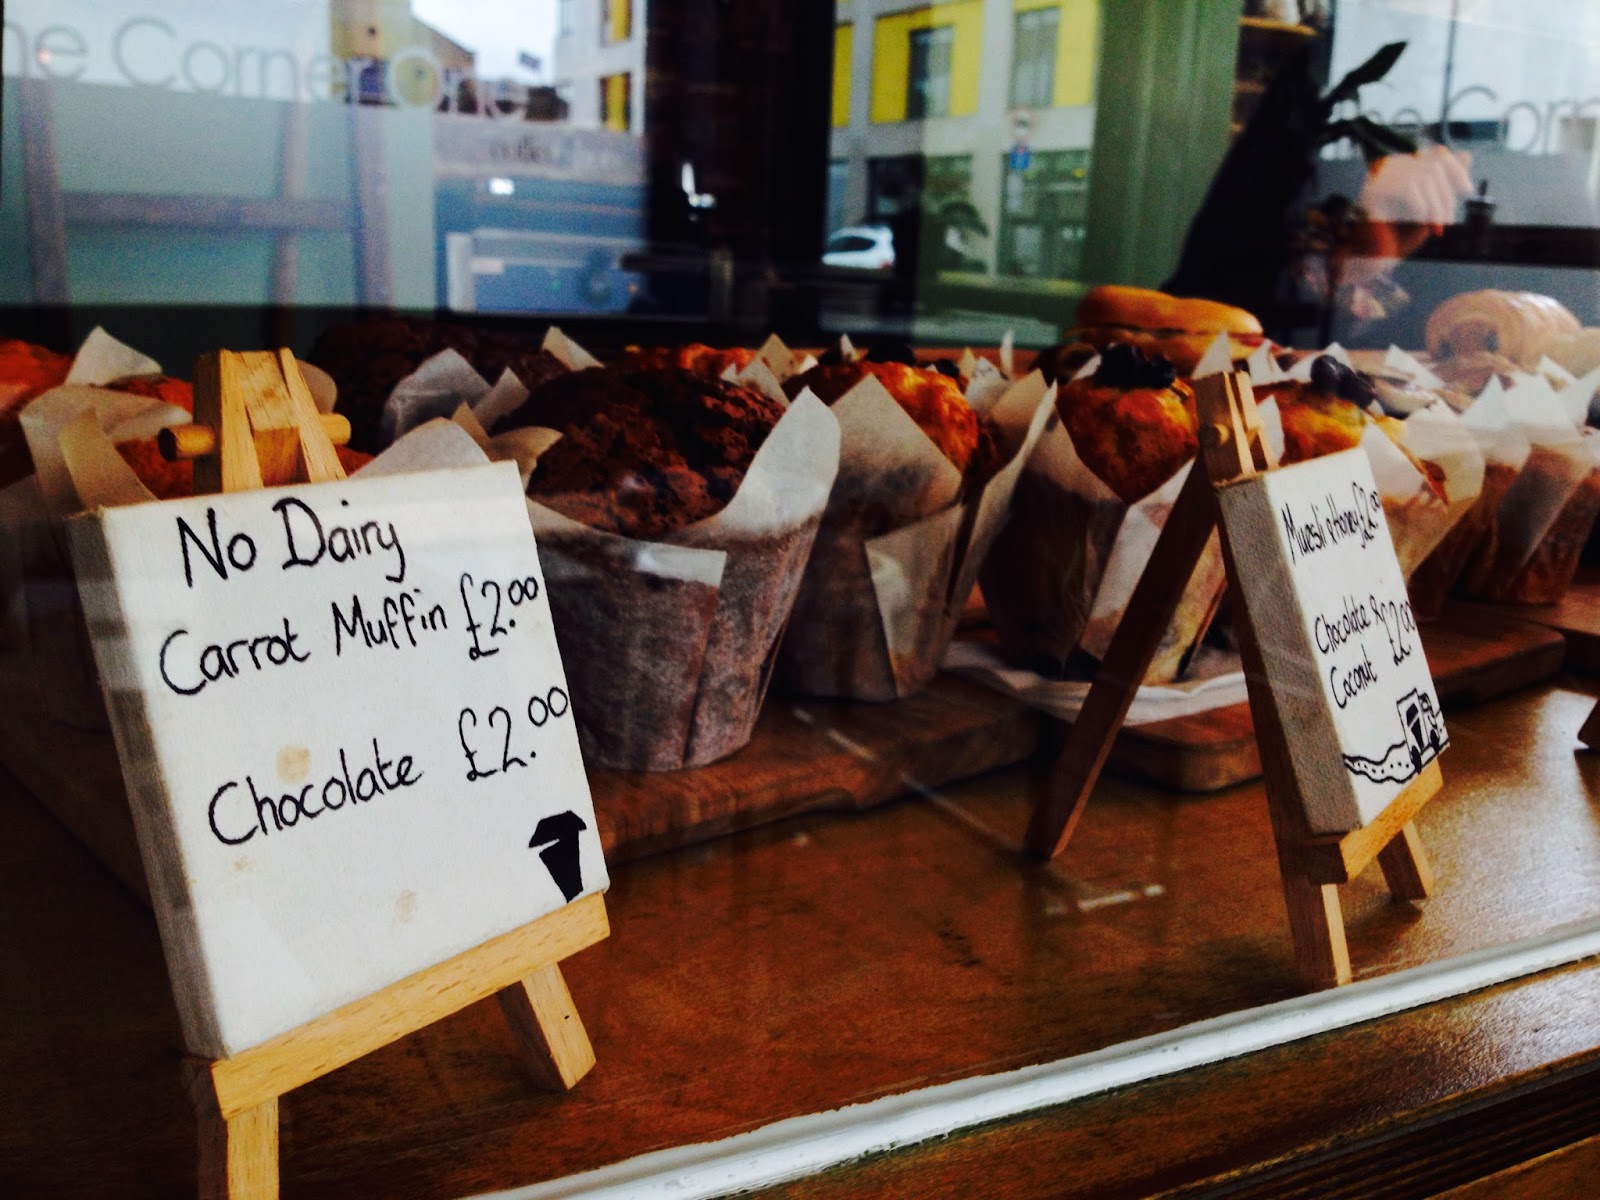 he Corner One
he Corn
No Dairy
Carrot Muffin £2.00
Chocolate £2.00
Muesli & Honey £2.00
Chocolate & £2.00
Coconut